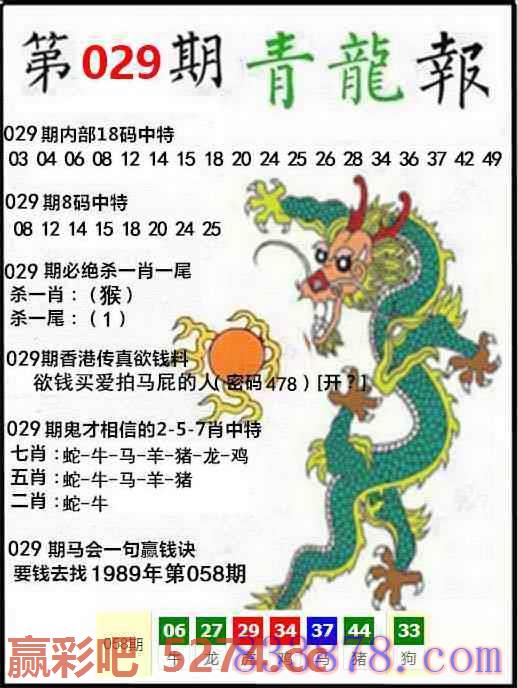 第029期青龍報
029期内部18码中特
03 04 06 08 12 14 15 18 20 24 25 26 28 34 36 37 42 49
029期8码中特
08 12 14 15 18 20 24 25
029期必绝杀一肖一尾
杀一肖：(猴)
杀一尾：(1)
029期香港传真欲钱料
欲钱买爱拍马屁的人(密码478)[开?]
029期鬼才相信的2-5-7肖中特
七肖:蛇-牛-马-羊-猪-龙-鸡
五肖:蛇-牛-马-羊-猪
二肖:蛇-牛
029期马会一句赢钱诀
要钱去找1989年第058期
058期 06 27 29 34 37 44 33
牛 龙 虎 鸡 马 猪 狗
赢彩吧